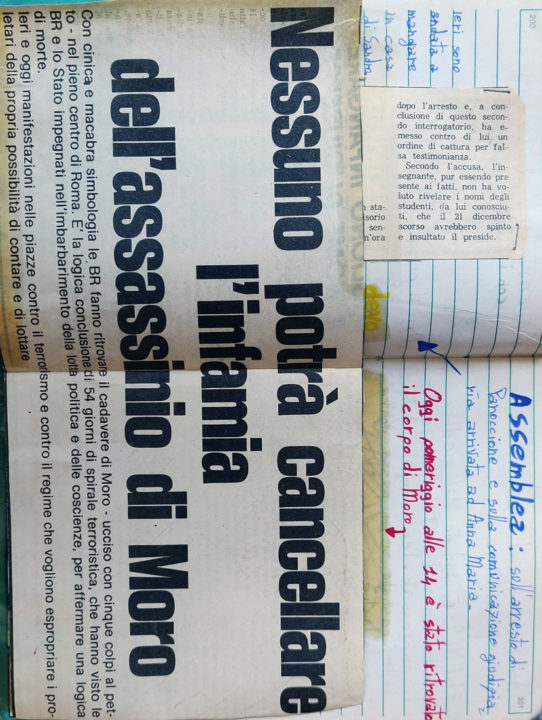 200
Ieri sono
andata a
mangiare
in casa
di Sandra
dopo l'arresto e, a con-
clusione di questo secon-
do interrogatorio, ha e-
messo contro di lui un
ordine di cattura per fal-
sa testimonianza.
Secondo l'accusa, l'in-
segnante, pur essendo pre
sente ai fatti, non ha vo-
luto rivelare i nomi degli
studenti, da lui conosciu-
ti, che il 21 dicembre
scorso avrebbero spinto
e insultato il preside.
sta-
sorio
sen-
n'ora
devo
201
Assemblea: sull'arresto di
Panoccione e sulla comunicazione giudizia=
ria arrivata ad Anna Maria.
Oggi pomeriggio alle 14 è stato ritrovato
il corpo di Moro
Nessuno potrà cancellare
l'infamia
dell'assassinio di Moro
Con cinica e macabra simbologia le BR fanno ritrovare il cadavere di Moro - ucciso con cinque colpi al pet-
to - nel pieno centro di Roma. E' la logica conclusione di 54 giorni di spirale terroristica, che hanno visto le
BR e lo Stato impegnati nell'imbarbarimento della lotta politica e delle coscienze, per affermare una logica
di morte.
Ieri e oggi manifestazioni nelle piazze contro il terrorismo e contro il regime che vogliono espropriare i pro-
letari della propria possibilità di contare e di lottare